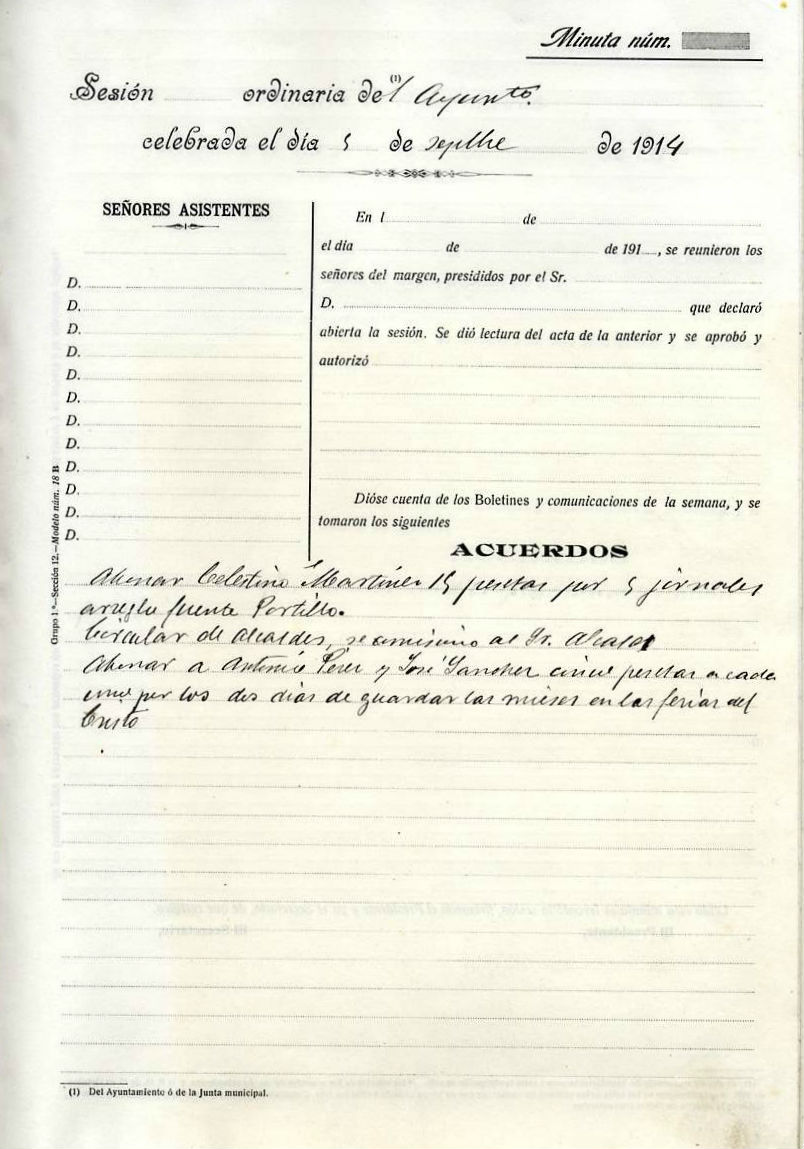 Minuta núm.
Sesión ordinaria de(1)l Ayunto.
celebrada el día 5 de sepbre de 1914
SEÑORES ASISTENTES
D.
D.
D.
D.
D.
D.
D.
D.
D.
D.
D.
D.
En l de
el día de de 191 , se reunieron los
señores del margen, presididos por el Sr.
D. que declaró
abierta la sesión. Se dió lectura del acta de la anterior y se aprobó y
autorizó
Dióse cuenta de los Boletines y comunicaciones de la semana, y se
tomaron los siguientes
ACUERDOS
Abonar Celestino Martínez 15 pesetas por 5 jornales
arreglo fuente Portillo.
Circular de Alcaldes, se al Sr. Alcalde
Abonar a Antonio Pérez y José Sanchez cinco pesetas a cada
uno por los dos días de guardar las mieses en las ferias del
Cristo
Grupo 1.º—Sección 12.—Modelo núm. 18 B
(1) Del Ayuntamiento ó de la Junta municipal.